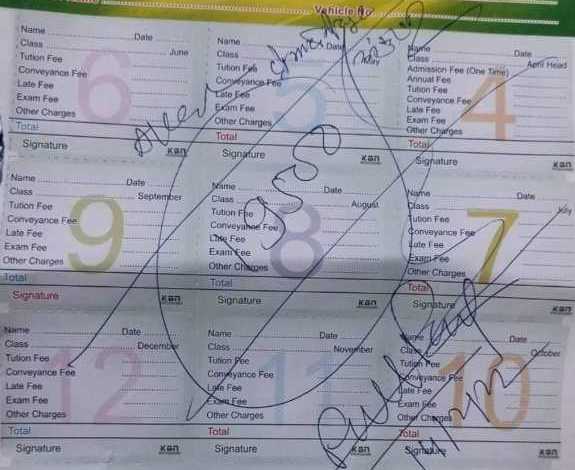 Vehicle No.
Name Date
Class June
Tution Fee
Conveyance Fee
Late Fee
Exam Fee
Other Charges
Total
Signature
KBN
6
Name Date
Class May
Tution Fee
Conveyance Fee
Late Fee
Exam Fee
Other Charges
Total
Signature
KBN
5
Name Date
Class April Head
Admission Fee (One Time)
Annual Fee
Tution Fee
Conveyance Fee
Late Fee
Exam Fee
Other Charges
Total
Signature
KBN
4
Name Date
Class September
Tution Fee
Conveyance Fee
Late Fee
Exam Fee
Other Charges
Total
Signature
KBN
9
Name Date
Class August
Tution Fee
Conveyance Fee
Late Fee
Exam Fee
Other Charges
Total
Signature
KBN
8
Name Date
Class July
Tution Fee
Conveyance Fee
Late Fee
Exam Fee
Other Charges
Total
Signature
KBN
7
Name Date
Class December
Tution Fee
Conveyance Fee
Late Fee
Exam Fee
Other Charges
Total
Signature
KBN
12
Name Date
Class November
Tution Fee
Conveyance Fee
Late Fee
Exam Fee
Other Charges
Total
Signature
KBN
11
Name Date
Class October
Tution Fee
Conveyance Fee
Late Fee
Exam Fee
Other Charges
Total
Signature
KBN
10